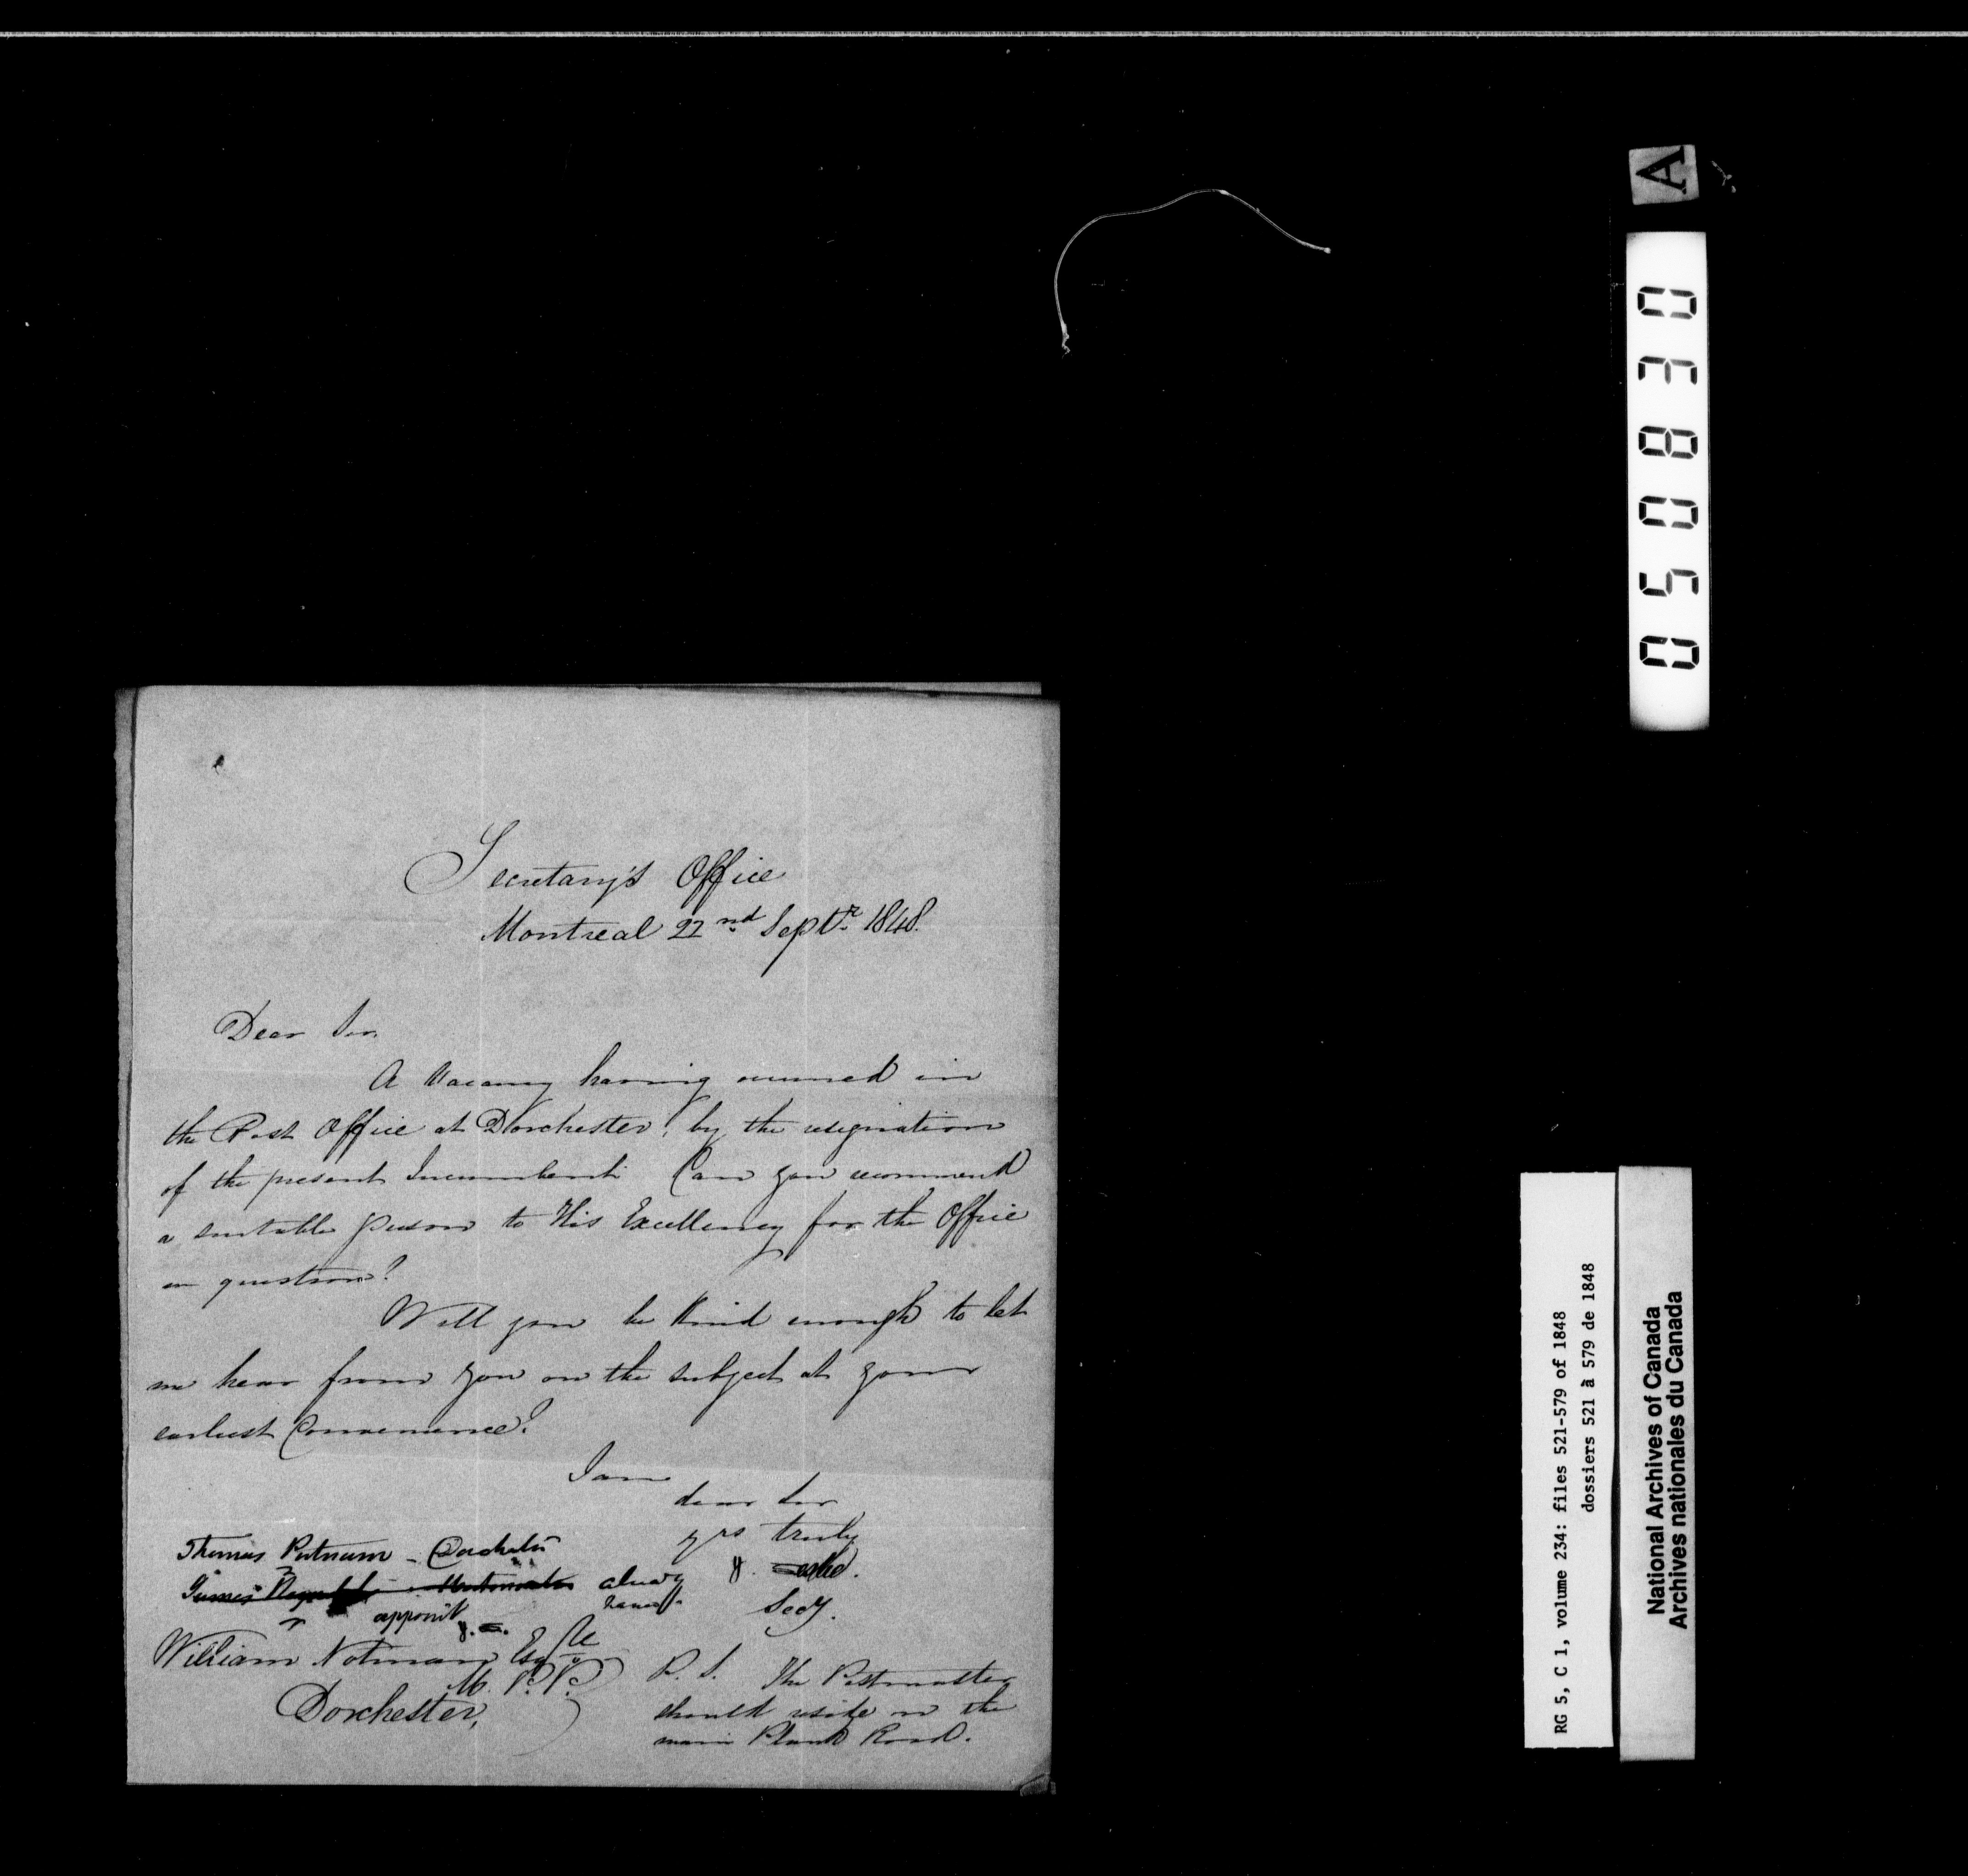 Secretary's Office
Montreal 22nd Septr. 1848.
Dear Sir
A Vacancy having occurred in
the Post Office at Dorchester, by the resignation
of the present Incumbent. Can you recommend
a suitable person to His Excellency for the Office
in question?
Will you be kind enough to let
me hear from you on the subject at your
earliest Convenience?
I am
dear Sir
yrs truly
Secy.
Thomas Putnam - Dorchester
James
appoint
William Notman Esqre
M. P. P.
Dorchester,
P. S. The Postmaster
should reside on the
main Plank Road.
A
050830
RG 5, C 1, volume 234: files 521-579 of 1848
dossiers 521 à 579 de 1848
National Archives of Canada
Archives nationales du Canada